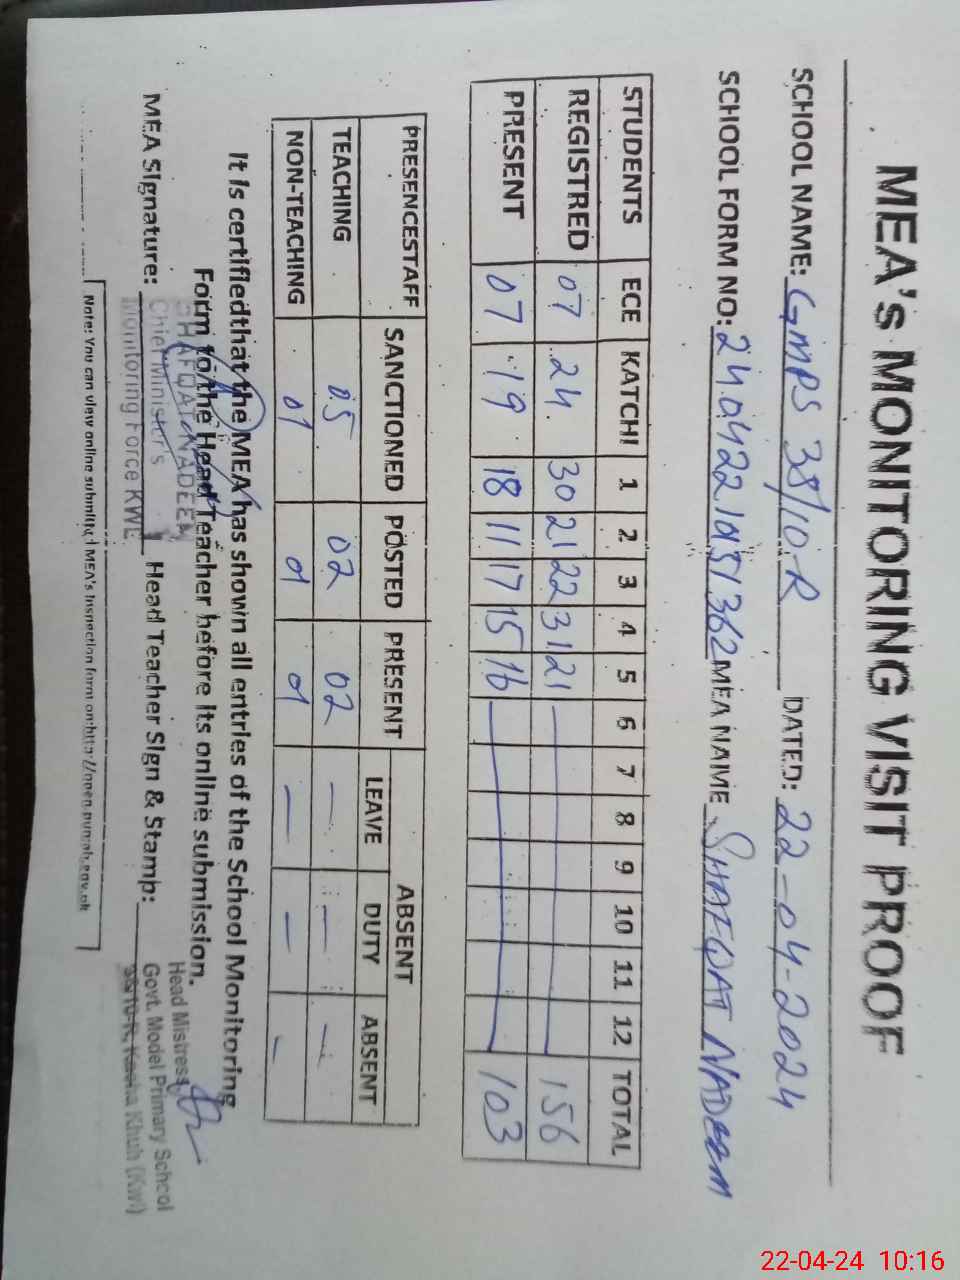 MEA's MONITORING VISIT PROOF
SCHOOL NAME: GMPS 38/10-R DATED: 22-04-2024
SCHOOL FORM NO: 24042210151362 MEA NAME SHAFQAT NADEEM
STUDENTS ECE KATCHI 1 2 3 4 5 6 7 8 9 10 11 12 TOTAL
REGISTRED 07 24 30 21 22 31 21 156
PRESENT 07 19 18 11 17 15 16 103
PRESENCESTAFF SANCTIONED POSTED PRESENT ABSENT
LEAVE DUTY ABSENT
TEACHING 05 02 02 - - -
NON-TEACHING 01 01 01 - - -
It is certifiedthat the MEA has shown all entries of the School Monitoring
Form to the Head Teacher before its online submission.
MEA Signature: Head Teacher Sign & Stamp:
SHAFQAT NADEEM
Chief Minister's
Monitoring Force KWL
Head Mistress
Govt. Model Primary School
38/10-R, Kacha Khuh (Kwl)
Note: You can view online submitted MEA's Inspection form on:http://open.punjab.gov.pk
22-04-24 10:16